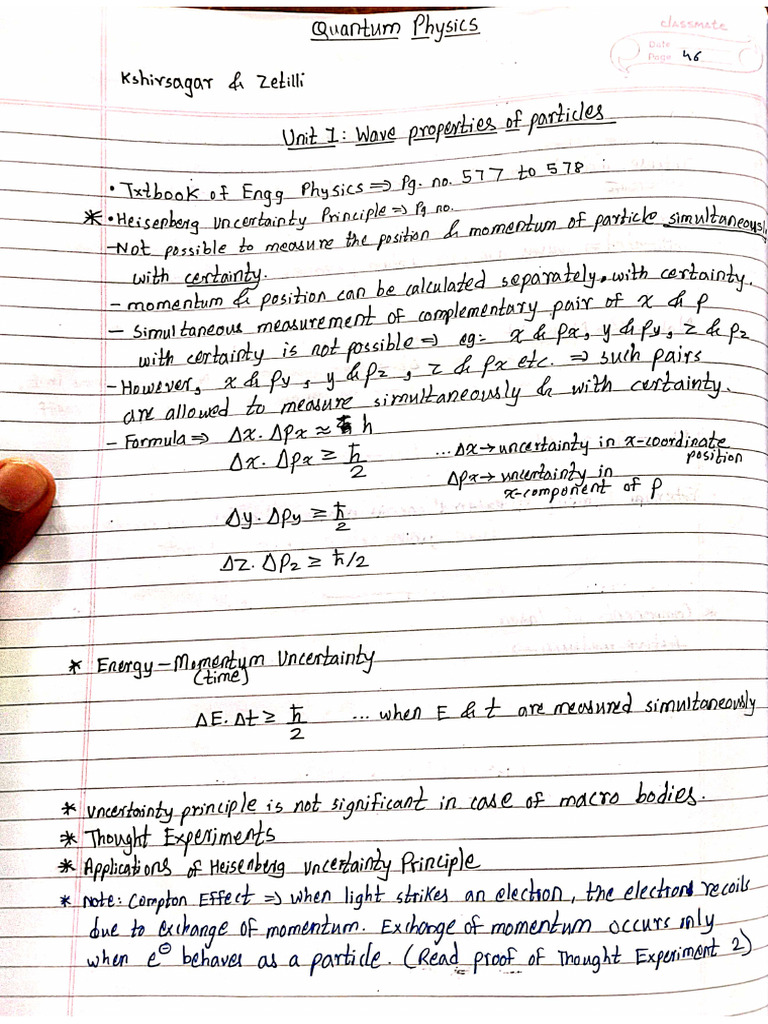 Quantum Physics
classmate
Date
Page 46
Kshirsagar & Zetilli
Unit 1: Wave properties of particles
• Txtbook of Engg Physics ⇒ Pg. no. 577 to 578
* • Heisenberg Uncertainty Principle ⇒ Pg no.
- Not possible to measure the position & momentum of particle simultaneously
with certainty.
- momentum & position can be calculated separately. with certainty.
- Simultaneous measurement of complementary pair of x & p
with certainty is not possible ⇒ eg:- x & px, y & py, z & pz
- However, x & py, y & pz, z & px etc. ⇒ such pairs
are allowed to measure simultaneously & with certainty.
- Formula ⇒ Δx. Δpx ≈ h
Δx. Δpx ≥ ħ/2 ... Δx → uncertainty in x-coordinate position
Δpx → uncertainty in
x-component of p
Δy. Δpy ≥ ħ/2
Δz. Δpz ≥ ħ/2
* Energy - Momentum Uncertainty
(time)
ΔE. Δt ≥ ħ/2 ... when E & t are measured simultaneously
* Uncertainty principle is not significant in case of macro bodies.
* Thought Experiments
* Applications of Heisenberg Uncertainty Principle
* Note: Compton Effect ⇒ when light strikes an electron, the electron recoils
due to exchange of momentum. Exchange of momentum occurs only
when e⊖ behaves as a particle. (Read proof of Thought Experiment 2)